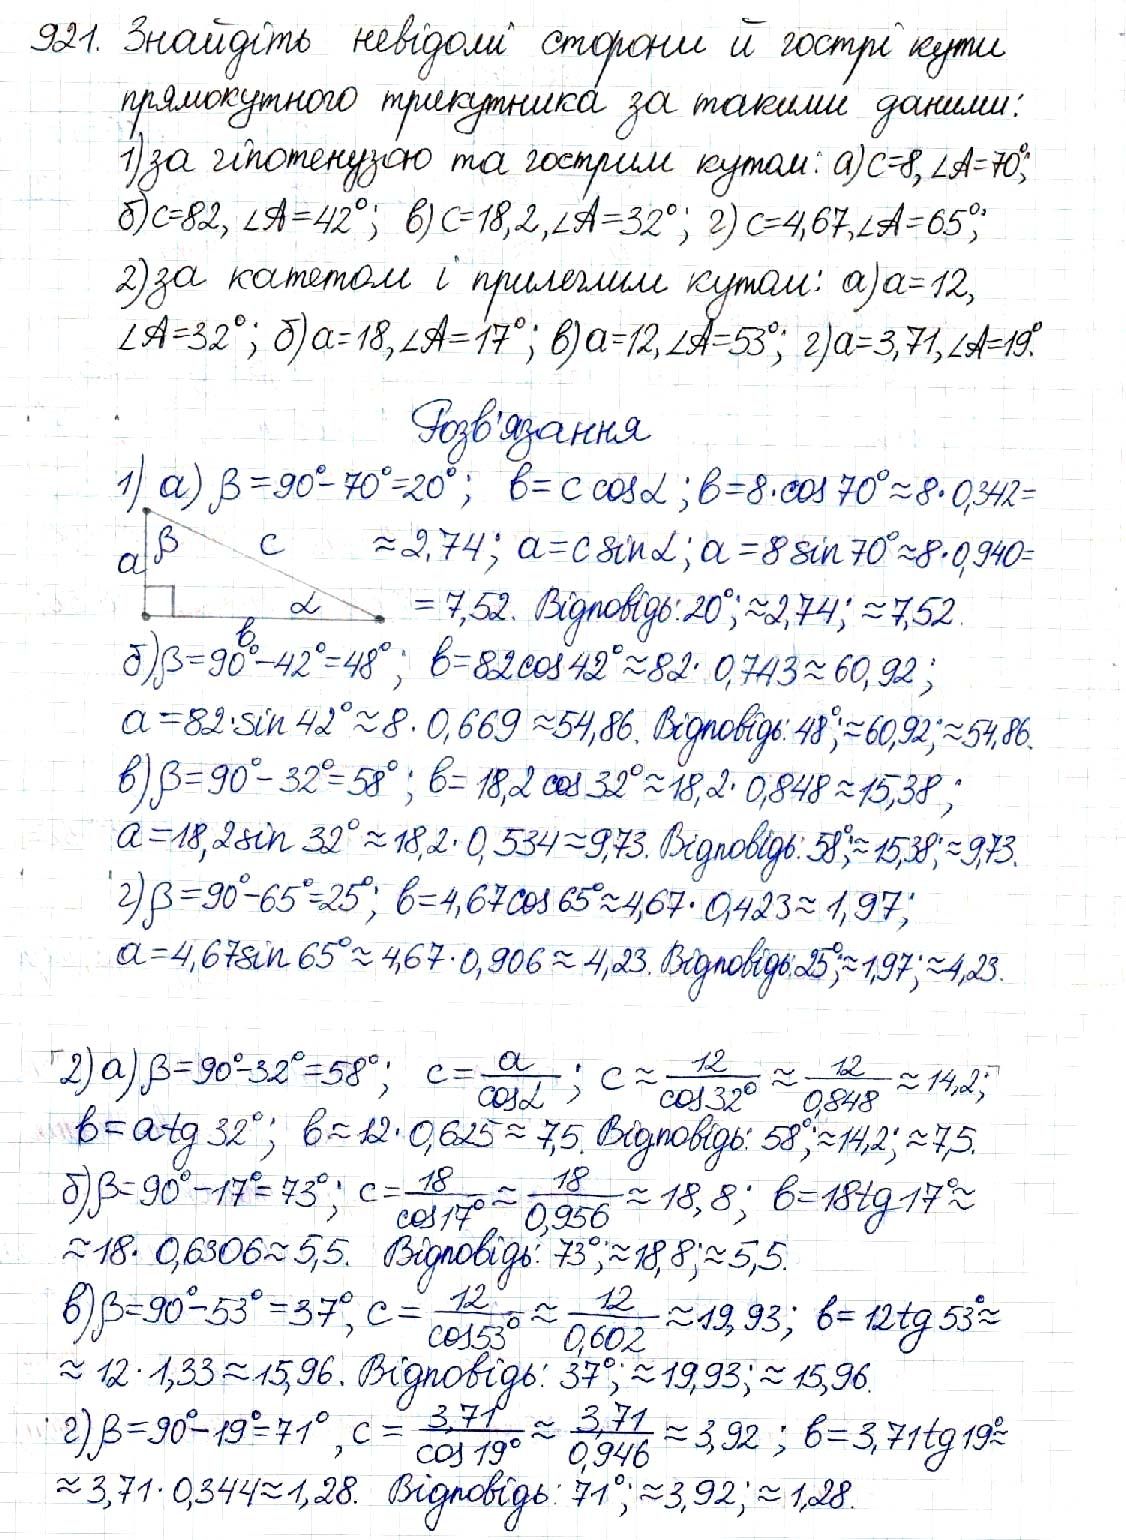 921. Знайдіть невідомі сторони й гострі кути
прямокутного трикутника за такими даними:
1) за гіпотенузою та гострим кутом: а) c=8, ∠A=70°;
б) c=82, ∠A=42°; в) c=18,2, ∠A=32°; г) c=4,67, ∠A=65°;
2) за катетом і прилеглим кутом: а) a=12,
∠A=32°; б) a=18, ∠A=17°; в) a=12, ∠A=53°; г) a=3,71, ∠A=19°.
Розв'язання
1) а) β=90°-70°=20°; b=c cosα; b=8·cos70°≈8·0,342=
a β c ≈2,74; a=c sinα; a=8 sin70°≈8·0,940=
α =7,52. Відповідь: 20°; ≈2,74; ≈7,52.
b
б) β=90°-42°=48°; b=82cos42°≈82·0,743≈60,92;
a=82·sin42°≈8·0,669≈54,86. Відповідь: 48°; ≈60,92; ≈54,86.
в) β=90°-32°=58°; b=18,2 cos32°≈18,2·0,848≈15,38;
a=18,2sin32°≈18,2·0,534≈9,73. Відповідь: 58°; ≈15,38; ≈9,73.
г) β=90°-65°=25°; b=4,67cos65°≈4,67·0,423≈1,97;
a=4,67sin65°≈4,67·0,906≈4,23. Відповідь: 25°; ≈1,97; ≈4,23.
2) а) β=90°-32°=58°; c=a/cosα; c≈12/cos32°≈12/0,848≈14,2;
b=a tg32°; b≈12·0,625≈7,5. Відповідь: 58°; ≈14,2; ≈7,5.
б) β=90°-17°=73°; c=18/cos17°≈18/0,956≈18,8; b=18tg17°≈
≈18·0,6306≈5,5. Відповідь: 73°; ≈18,8; ≈5,5.
в) β=90°-53°=37°, c=12/cos53°≈12/0,602≈19,93; b=12tg53°≈
≈12·1,33≈15,96. Відповідь: 37°; ≈19,93; ≈15,96.
г) β=90°-19°=71°, c=3,71/cos19°≈3,71/0,946≈3,92; b=3,71tg19°≈
≈3,71·0,344≈1,28. Відповідь: 71°; ≈3,92; ≈1,28.